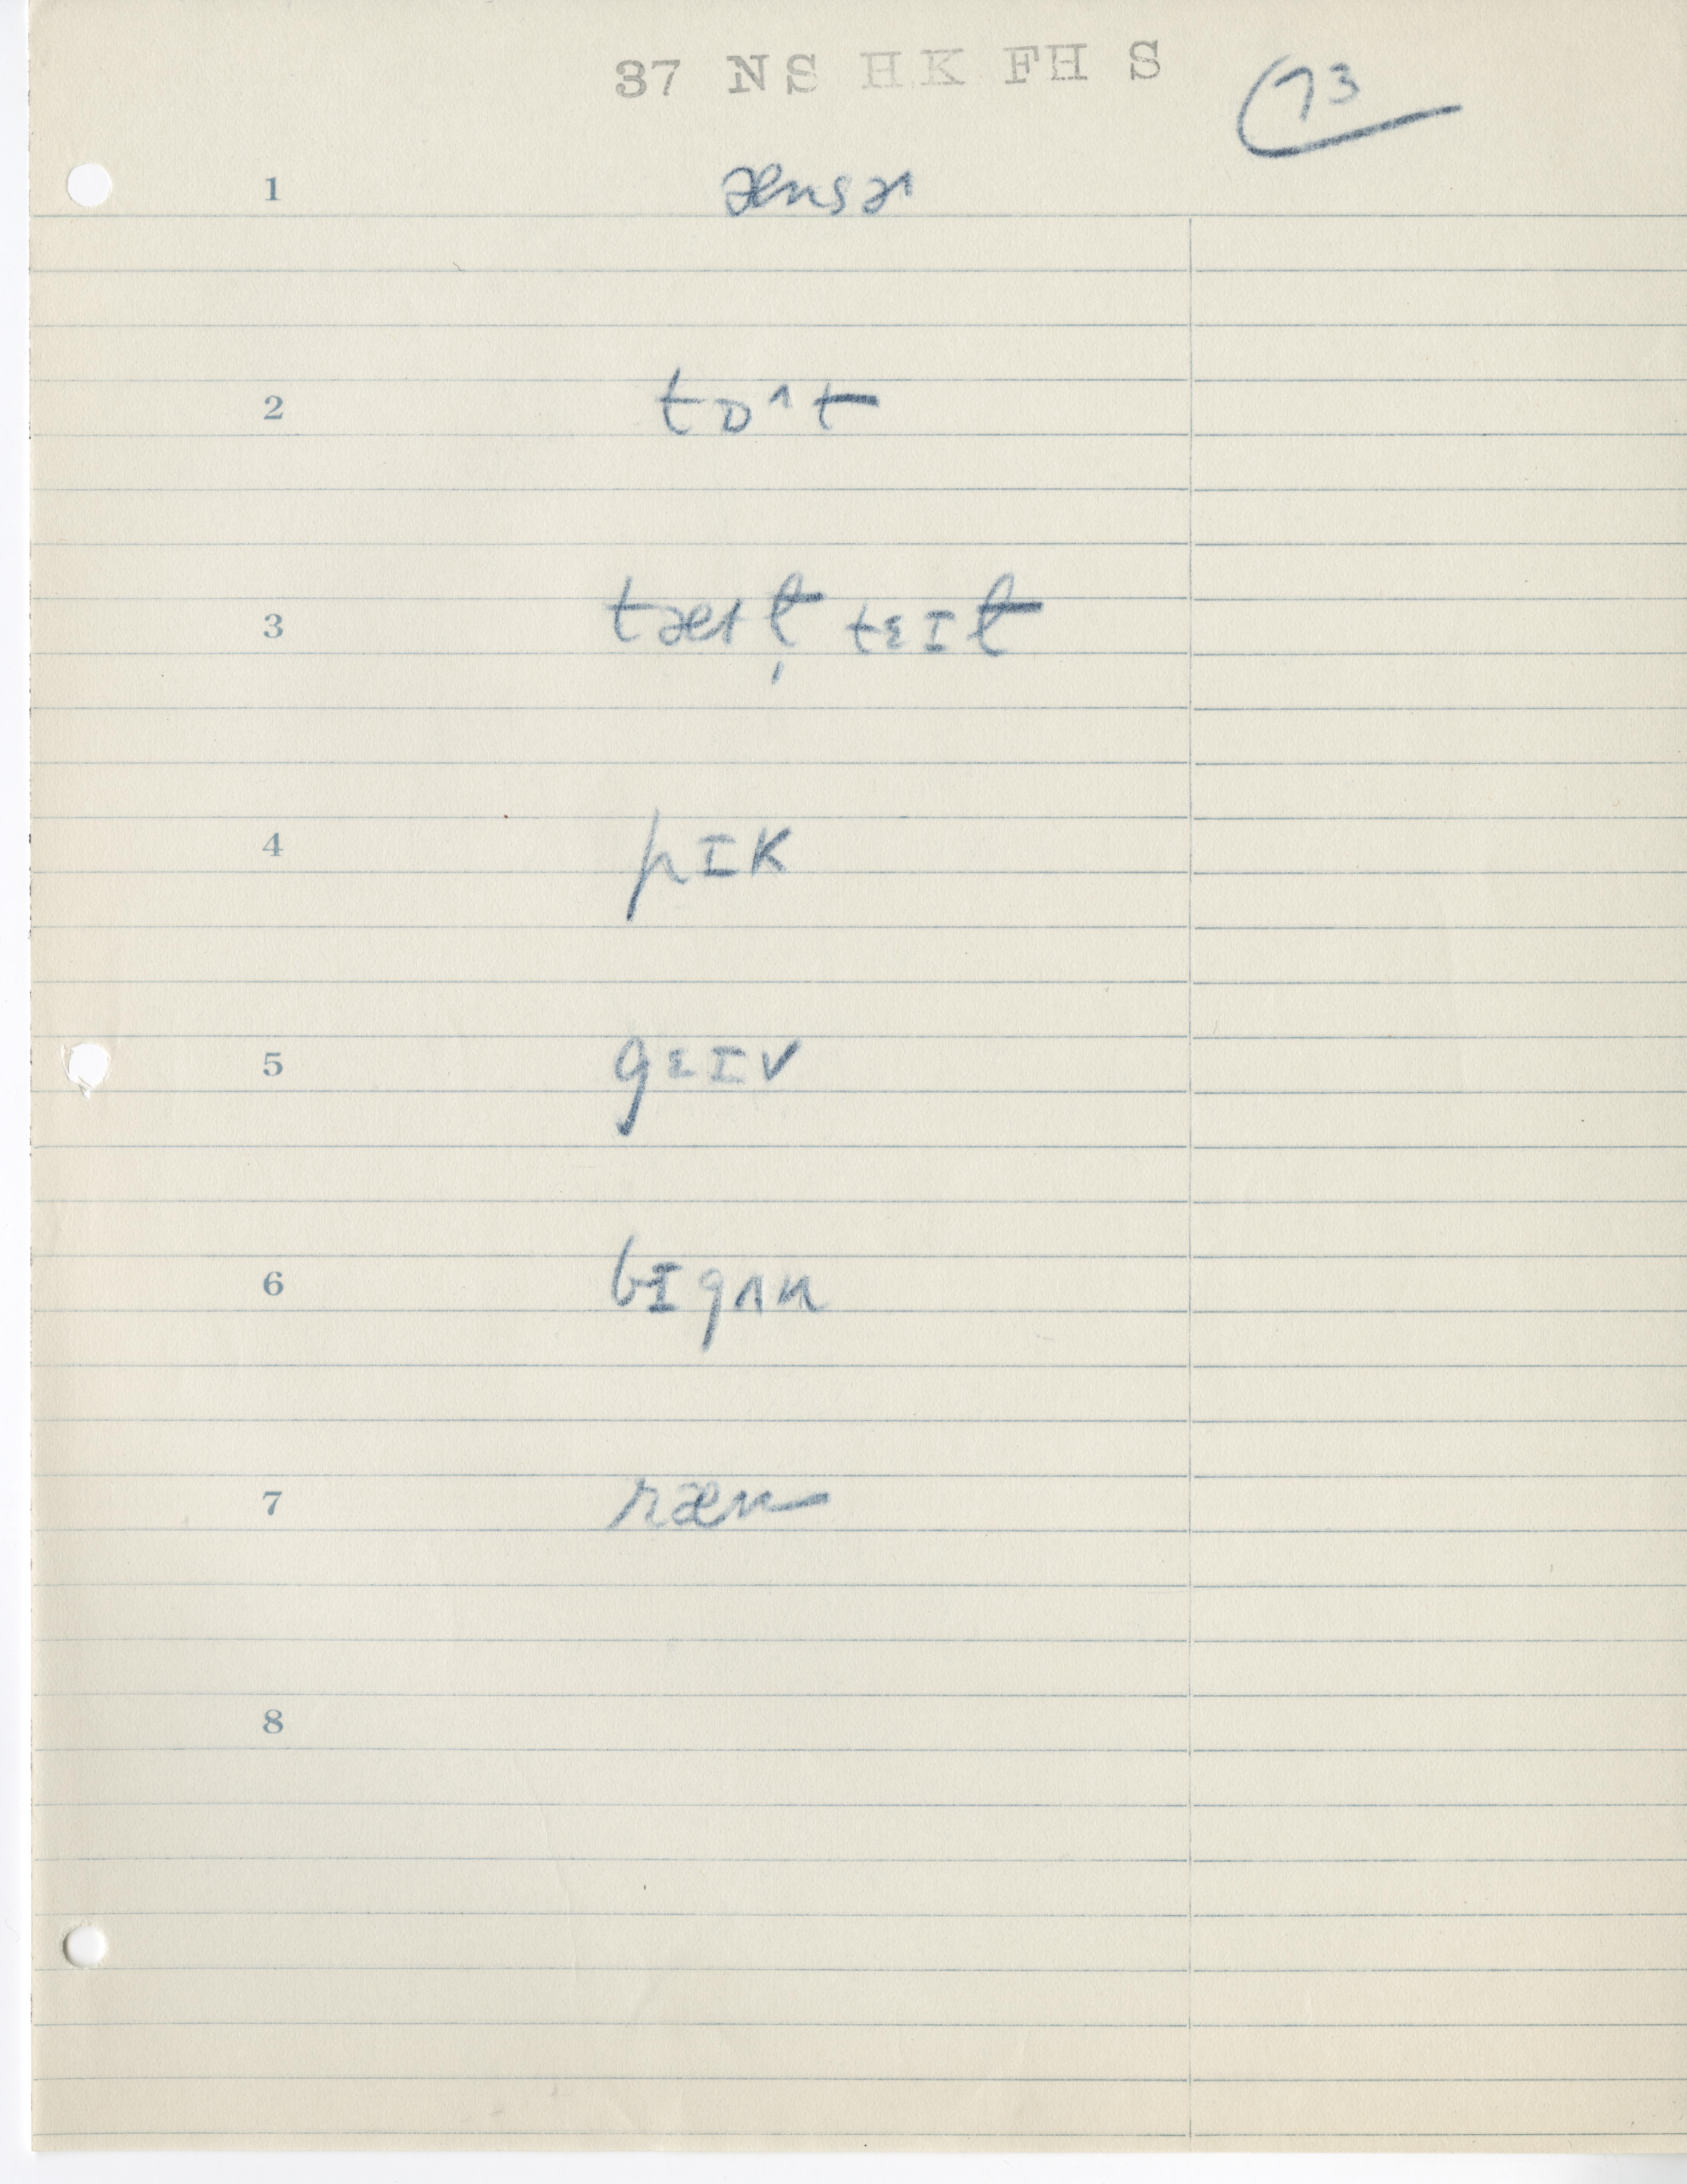 37 NS HK FH S
73
1 ænsɚ
2 tɒ^t
3 tæɪt̩ tɛɪt
4 pɪk
5 gɛɪv
6 bɪgʌn
7 ræn
8